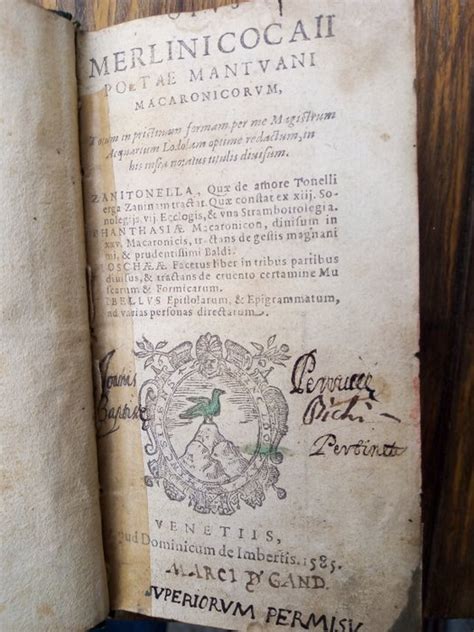 MERLINI COCAII
POETAE MANTVANI
MACARONICORVM,
Totum in pristinam formam per me Magistrum
Acquarium Lodolam optime redactum, in
his infra notatus titulis diuisum.
ZANITONELLA, Quæ de amore Tonelli
erga Zaninam tractat. Quæ constat ex xiij. So-
nolegijs, vij. Ecclogis, & vna Strambottolegia.
PHANTHASIÆ Macaronicon, diuisum in
xxv. Macaronicis, tractans de gestis magnani
mi, & prudentissimi Baldi.
MOSCHÆÆ Facetus liber in tribus partibus
diuisus, & tractans de cruento certamine Mu
scarum & Formicarum.
LIBELLVS Epistolarum, & Epigrammatum,
ad varias personas directarum.
Joannis
Baptiste
Pichi
Pertinet
VENETIIS,
Apud Dominicum de Imbertis. 1585.
MARCI GAND.
SVPERIORVM PERMISV